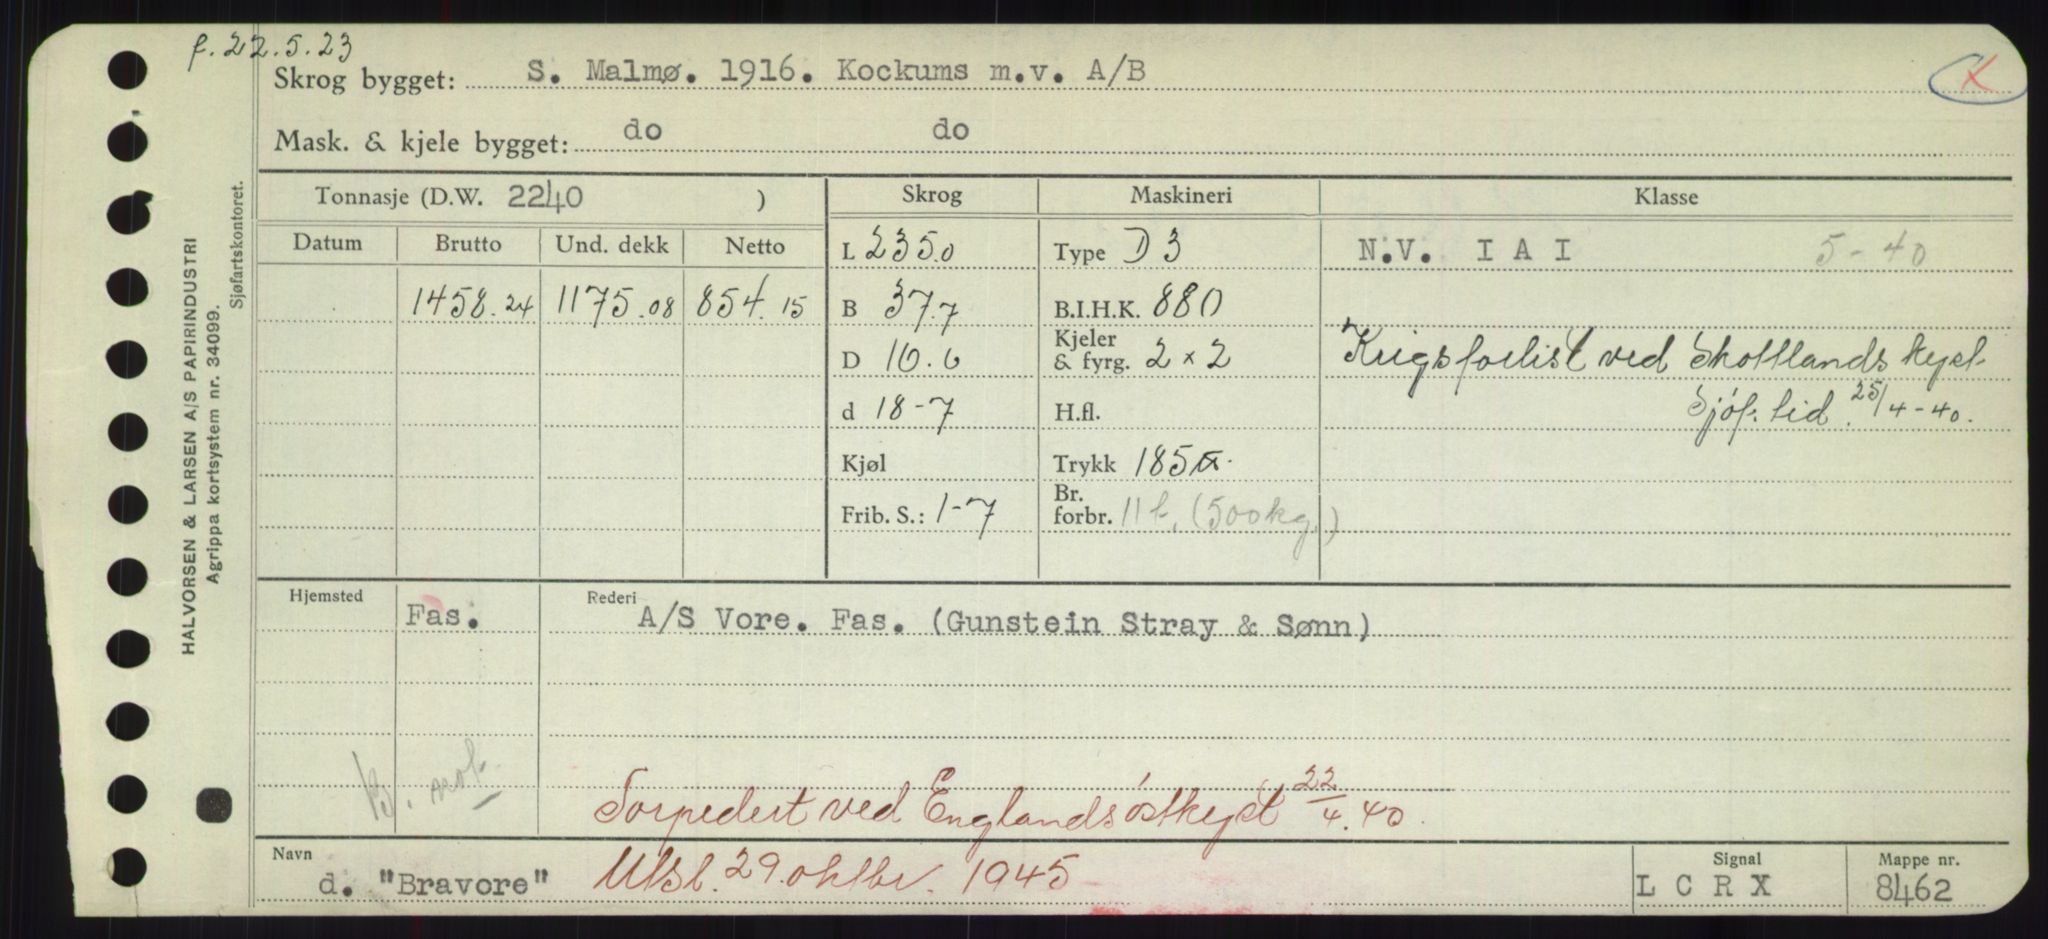 f. 22.5.23
Skrog bygget: S. Malmø. 1916. Kockums m.v. A/B
X
Mask. & kjele bygget: do do
Tonnasje (D.W. 2240 ) Skrog Maskineri Klasse
Datum Brutto Und. dekk Netto L 235.0 Type D 3 N.V. I A I 5-40
1458.24 1175.08 854.15 B 37.7 B.I.H.K. 880
D 16.6 Kjeler & fyrg. 2 x 2 Krigsforlist ved Skottlands kyst
d 18-7 H.fl. Sjøf. tid. 25/4-40.
Kjøl Trykk 185
Frib. S.: 1-7 Br. forbr. 11 t. (500 kg.)
Hjemsted Rederi
Fas. A/S Vore. Fas. (Gunstein Stray & Sønn)
Torpedert ved Englands østkyst 22/4.40.
Navn Signal Mappe nr.
d. "Bravore" Utsl. 29. oktbr. 1945 L C R X 8462
HALVORSEN & LARSEN A/S PAPIRINDUSTRI
Agrippa kortsystem nr. 34099.
Sjøfartskontoret.